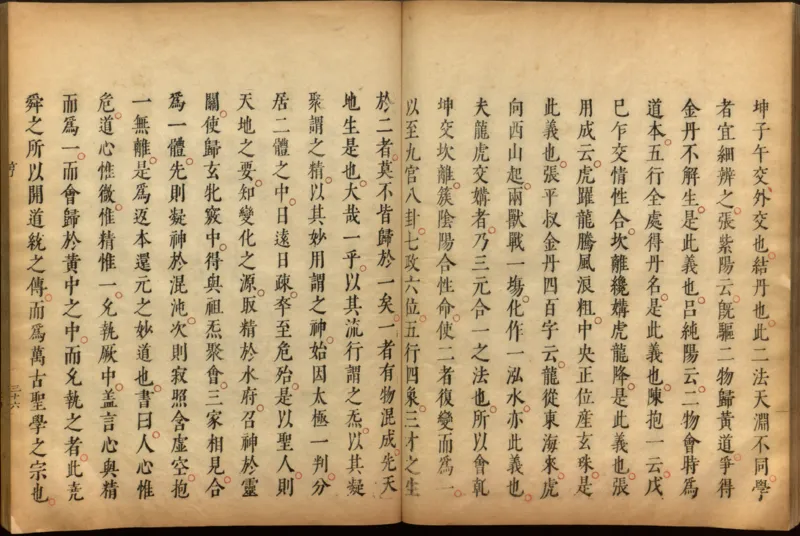 坤子午交外交也結丹也此二法天淵不同學
者宜細辨之張紫陽云旣驅二物歸黃道爭得
金丹不解生是此義也呂純陽云二物會時爲
道本五行全處得丹名是此義也陳抱一云戊
巳乍交情性合坎離纔媾虎龍降是此義也張
用成云虎躍龍騰風浪粗中央正位産玄珠是
此義也張平叔金丹四百字云龍從東海來虎
向西山起兩獸戰一塲化作一泓水亦此義也
夫龍虎交媾者乃三元合一之法也所以會乾
坤交坎離簇陰陽合性命使二者復變而爲一
以至九宮八卦七政六位五行四象三才之生
於二者莫不皆歸於一矣一者有物混成先天
地生是也大哉一乎以其流行謂之炁以其凝
聚謂之精以其妙用謂之神始因太極一判分
居二體之中日遠日疎卒至危殆是以聖人則
天地之要知變化之源取精於水府召神於靈
關使歸玄牝竅中得與祖炁聚會三家相見合
爲一體先則凝神於混沌次則寂照含虛空抱
一無離是爲返本還元之妙道也書曰人心惟
危道心惟微惟精惟一允執厥中盖言心與精
而爲一而會歸於黃中之中而允執之者此堯
舜之所以開道統之傳而爲萬古聖學之宗也
三十六